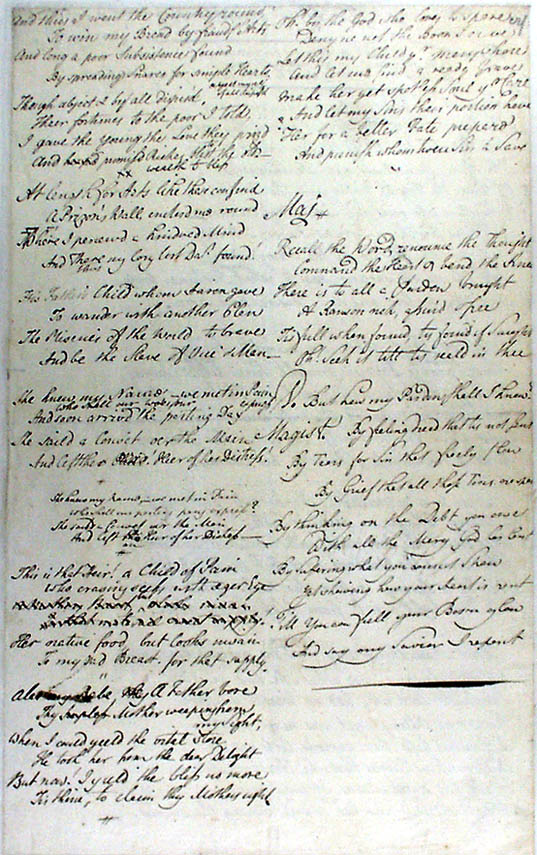 and thus I went the Country round
To win my Bread by fraudful Arts
And long a poor Subsistence found
By spreading Snares for simple Hearts
Though abject & by all
Their fortunes to the poor I told
I gave the young the Love they
And promis'd Riches
wealth to the
At length for Arts like these confind
A Prison's Wall enclosd me round
Where I perceivd a kindred Mind
And There my long lost Da found!
this
His Father's Child whom Aaron gave
To wander with another Clan
The Miseries of the World to brave
And be the Slave of Vice & Man —
She knew my Name — we met in Pain
who shall our parting pangs express
And soon arrived the parting Day
She saild a Convict oer the Main
And left the Heir of her Distress!
She knew my name — we met in Pain
who shall our parting pangs express?
She saild a Convict oer the Main
And left an Heir of her Distress —
This is that Heir! a Child of Pain
who craving seeks with eager Eye
Her native food, but looks in vain
To my sad Breast for that supply.
Babe, thy Father bore
Thy Mother weeping from
my sight,
When I could yield the vital Store
He took her from the dear Delight
But now! I yield the bliss no more
Tis thine, to claim thy Mothers right
Oh. by the God who loves to spare
Deny me not the Boon I crave
Let this my Child yr Mercy share
And let me find a ready Grave
Make her yet spotless Soul yr Care
And let my Sins their portion have
Her for a better Fate prepard
And punish whom twere Sin to Save
Maj
Recall the Word, renounce the Thought
Command thy Heart & bend thy Knee
There is to all a Pardon brought
A Ransom rich, assurd & free
Tis full when found, tis found if Sought
Oh. Seek it till tis seald in thee
But how my Pardon shall I know?
Magist. By feeling dread that tis not sent
By Tears for Sin that freely flow
By Grief that all thy Tears are spent
By thinking on the Debt you owe
With All the Mercy God has lent
By suffering what you cannot shew
Yet shewing how your heart is rent
Till You can feel your Bosom glow
And say my Savior I repent